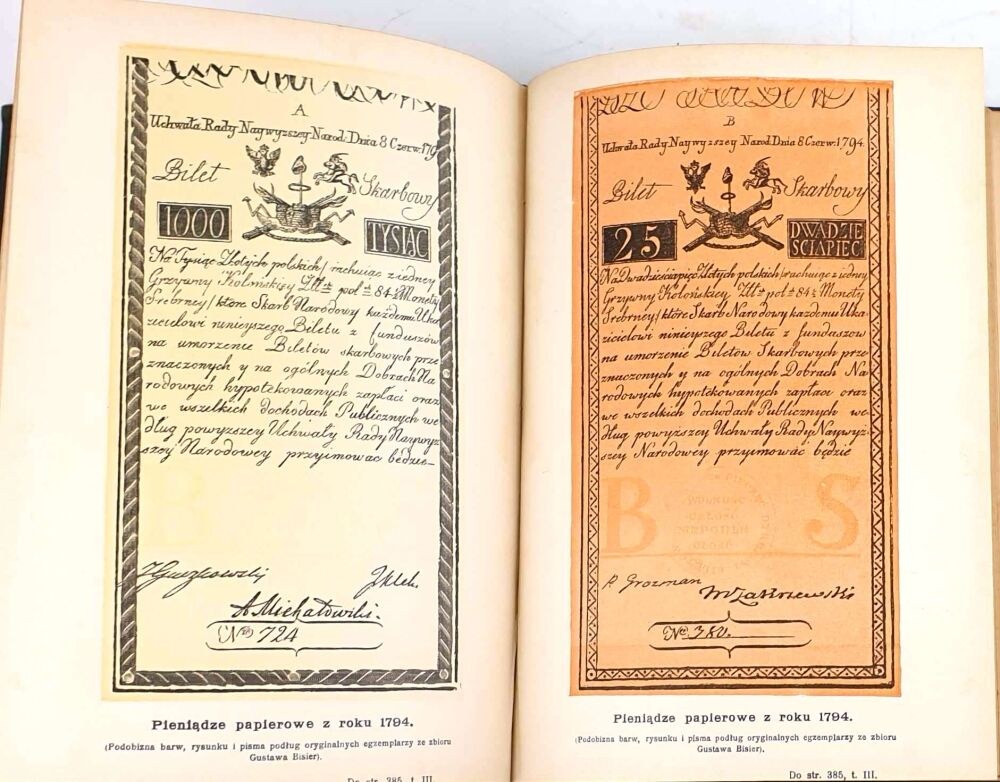 A
Uchwała Rady Naywyzszey Narod: Dnia 8 Czerw: 179
Bilet Skarbowy
1000 TYSIĄC
Na Tysiąc Złotych polskich / rachuiąc z iedney
Grzywny Kolińskiey Zll pol 84½ Monety
Srebrney / które Skarb Narodowy każdemu Uka
zicielowi ninieyszego Biletu z funduszów
na umorzenie Biletów skarbowych prze
znaczonych y na ogólnych Dobrach Na
rodowych hypotekowanych zapłaci oraz
we wszelkich dochodach Publicznych we
dług powyższey Uchwały Rady Naywyż
szey Narodowey przyimować będzie
A Michałowski.
No 724
Pieniądze papierowe z roku 1794.
(Podobizna barw, rysunku i pisma podług oryginalnych egzemplarzy ze zbioru
Gustawa Bisier).
Do str. 385, t. III.
B
Uchwała Rady Naywyzszey Narod. Dnia 8 Czerw. 1794.
Bilet Skarbowy
25 DWADZIE
SCIAPIEC
Na Dwadzieściapięć Złotych polskich / rachuiąc z iedney
Grzywny Kolońskiey Zll pol 84½ Monety
Srebrney / które Skarb Narodowy każdemu Uka
zicielowi ninieyszego Biletu z funduszow
na umorzenie Biletów Skarbowych prze
znaczonych y na ogólnych Dobrach Na
rodowych hypotekowanych zapłace oraz
we wszelkich dochodach Publicznych we
dług powyższey Uchwały Rady Naywyż
szey Narodowey przyimować będzie
B S
WOLNOSC
CAŁOSC
NIEPODLE
GŁOSC
P. Grozman
M Zakrzewski
No 380.
Pieniądze papierowe z roku 1794.
(Podobizna barw, rysunku i pisma podług oryginalnych egzemplarzy ze zbioru
Gustawa Bisier).
Do str. 385, t. III.